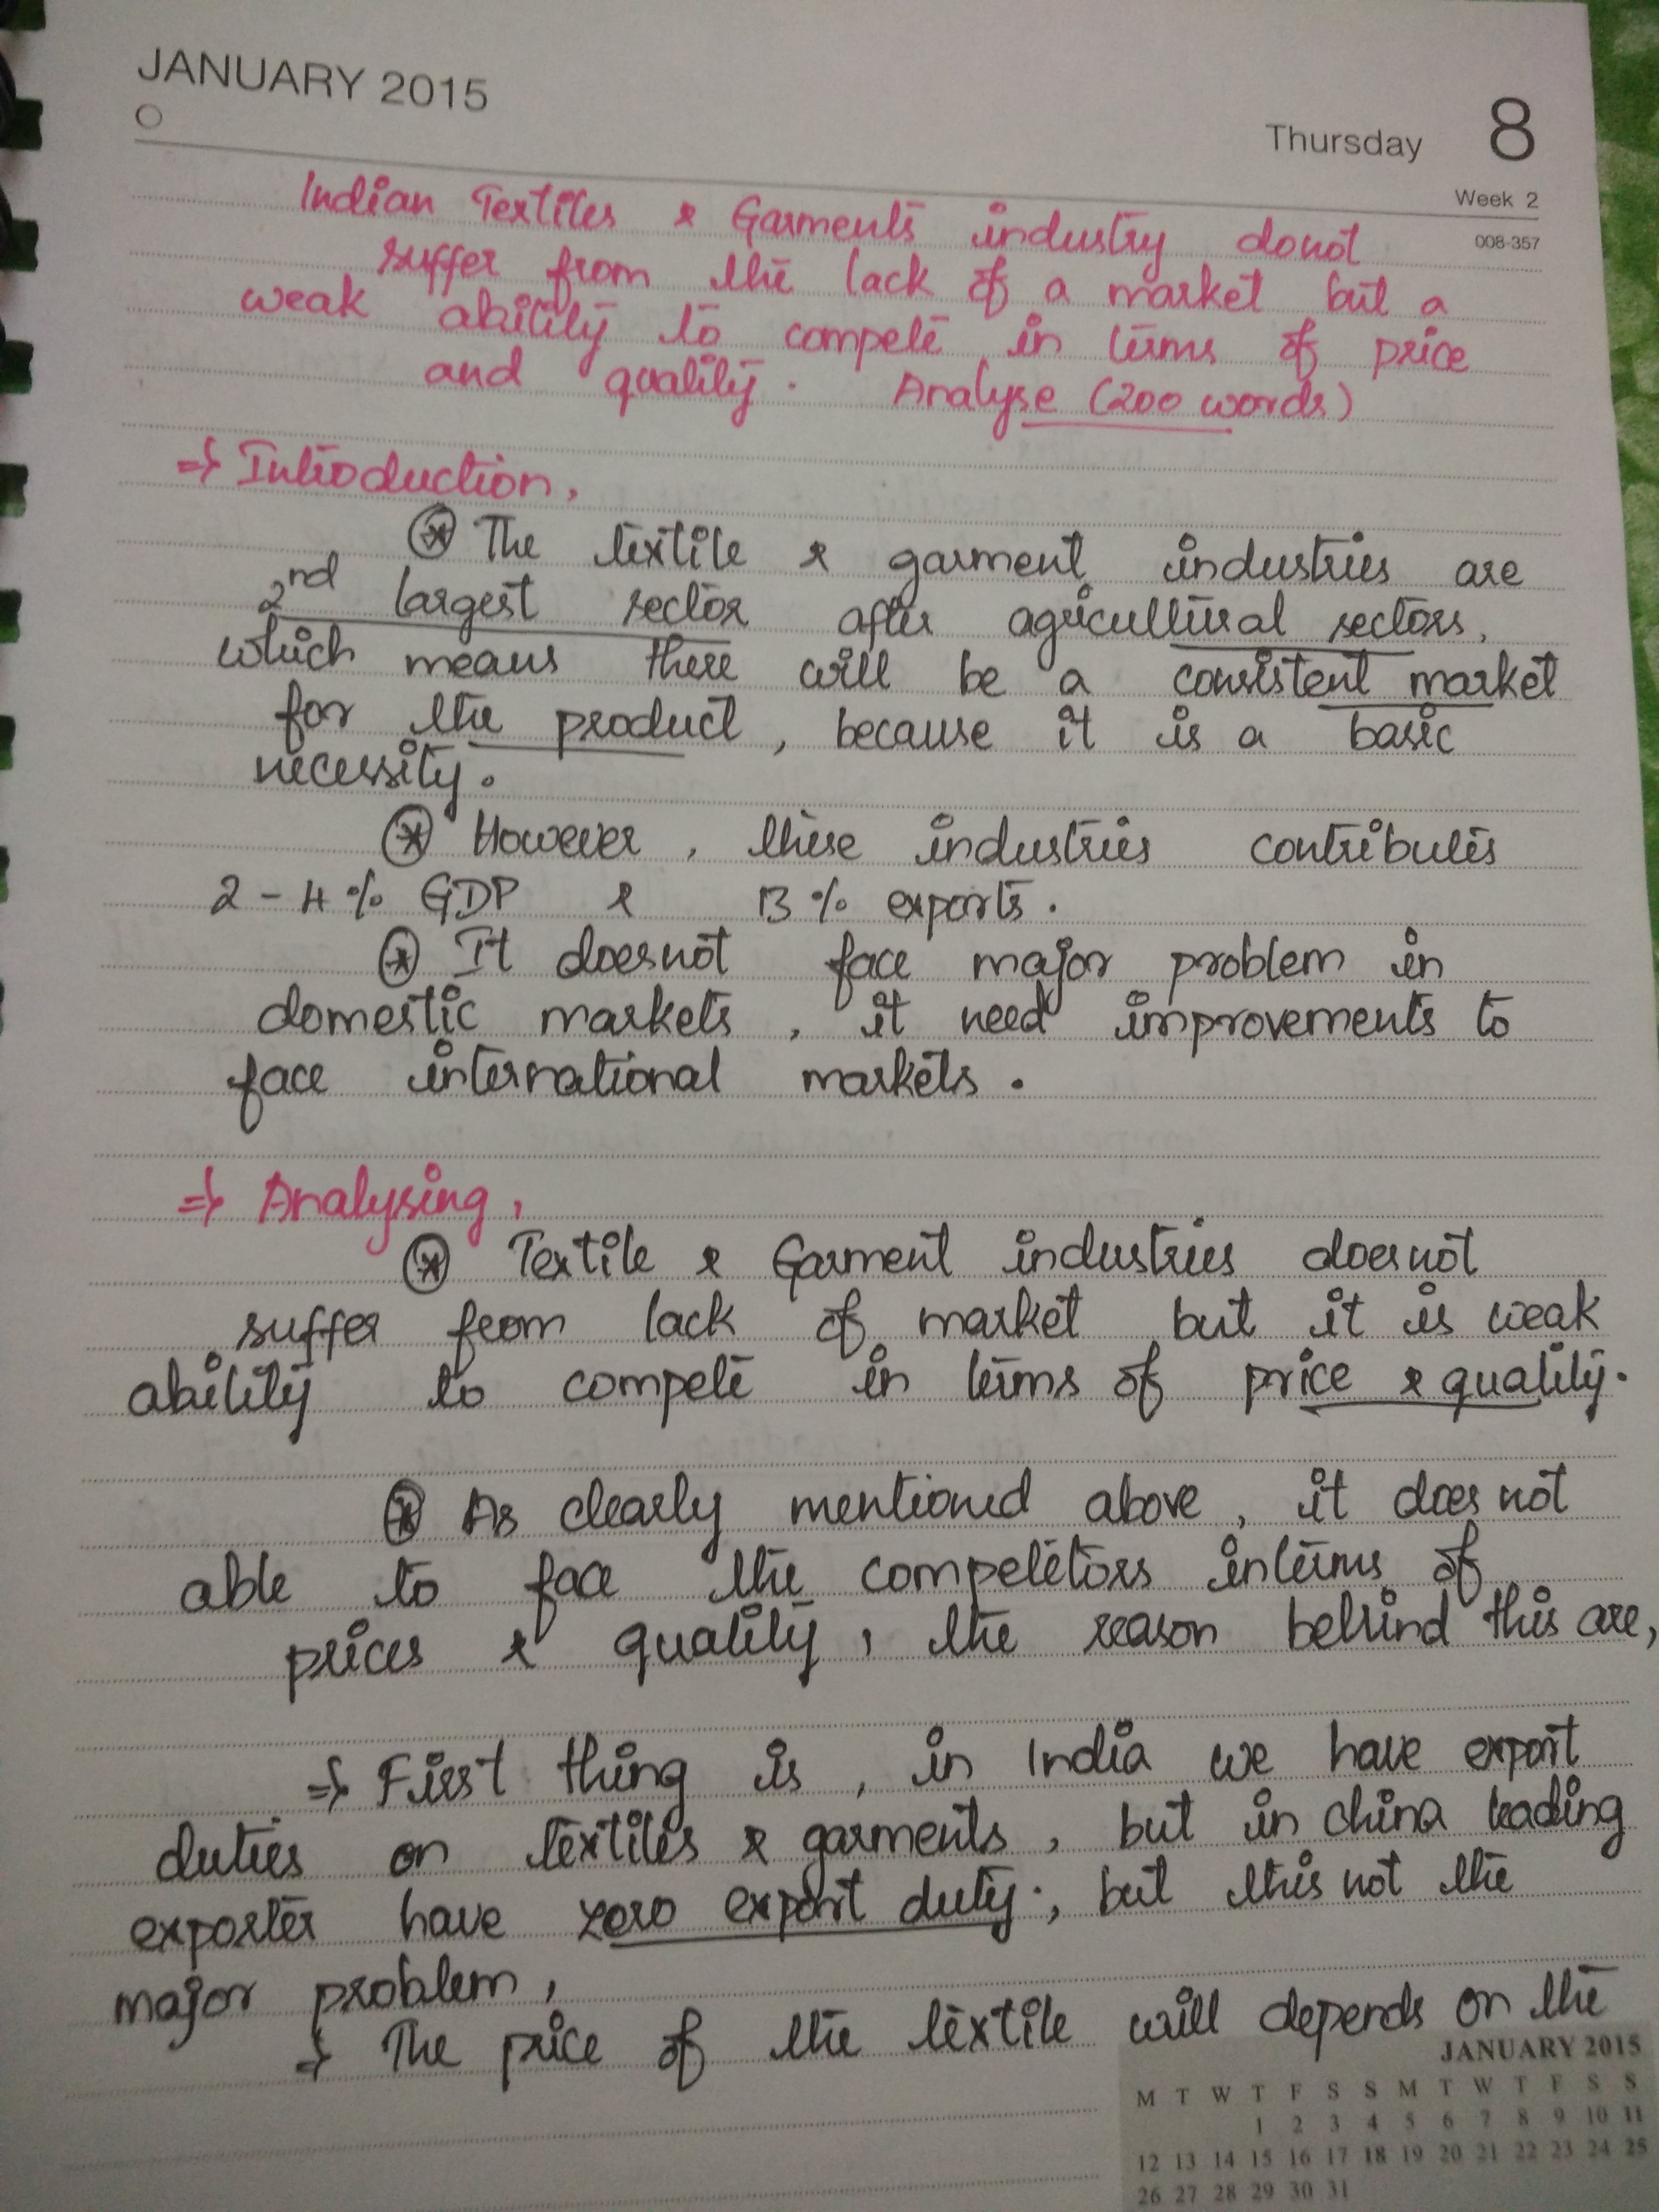 JANUARY 2015
Thursday 8
Week 2
008-357
Indian Textiles & Garments industry donot
suffer from the lack of a market but a
weak ability to compete in terms of price
and quality. Analyse (200 words)
⇒ Introduction,
⊛ The textile & garment industries are
2nd largest sector after agricultural sectors,
which means there will be a consistent market
for the product, because it is a basic
necessity.
⊛ However, these industries contributes
2-4% GDP & 13% exports.
⊛ It doesnot face major problem in
domestic markets, it need improvements to
face international markets.
⇒ Analysing,
⊛ Textile & Garment industries doesnot
suffer from lack of market but it is weak
ability to compete in terms of price & quality.
⊛ As clearly mentioned above, it does not
able to face the competetors interms of
prices & quality, the reason behind this are,
⇒ First thing is, in India we have export
duties on textiles & garments, but in china leading
exporter have zero export duty; but this not the
major problem,
⇒ The price of the textile will depends on the
JANUARY 2015
M T W T F S S M T W T F S S
1 2 3 4 5 6 7 8 9 10 11
12 13 14 15 16 17 18 19 20 21 22 23 24 25
26 27 28 29 30 31